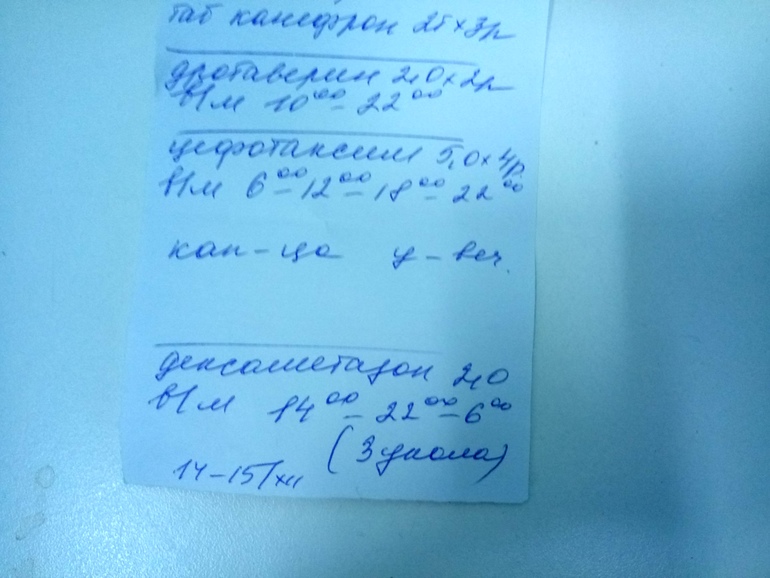 таб канефрон 2т×3р
дротаверин 2,0×2р
в/м 10⁰⁰ – 22⁰⁰
цефотаксим 5,0×4р
в/м 6⁰⁰ – 12⁰⁰ – 18⁰⁰ – 22⁰⁰
кап-ца у-веч.
дексаметазон 2,0
в/м 14⁰⁰ – 22⁰⁰ – 6⁰⁰
(3 укола)
14–15/XII